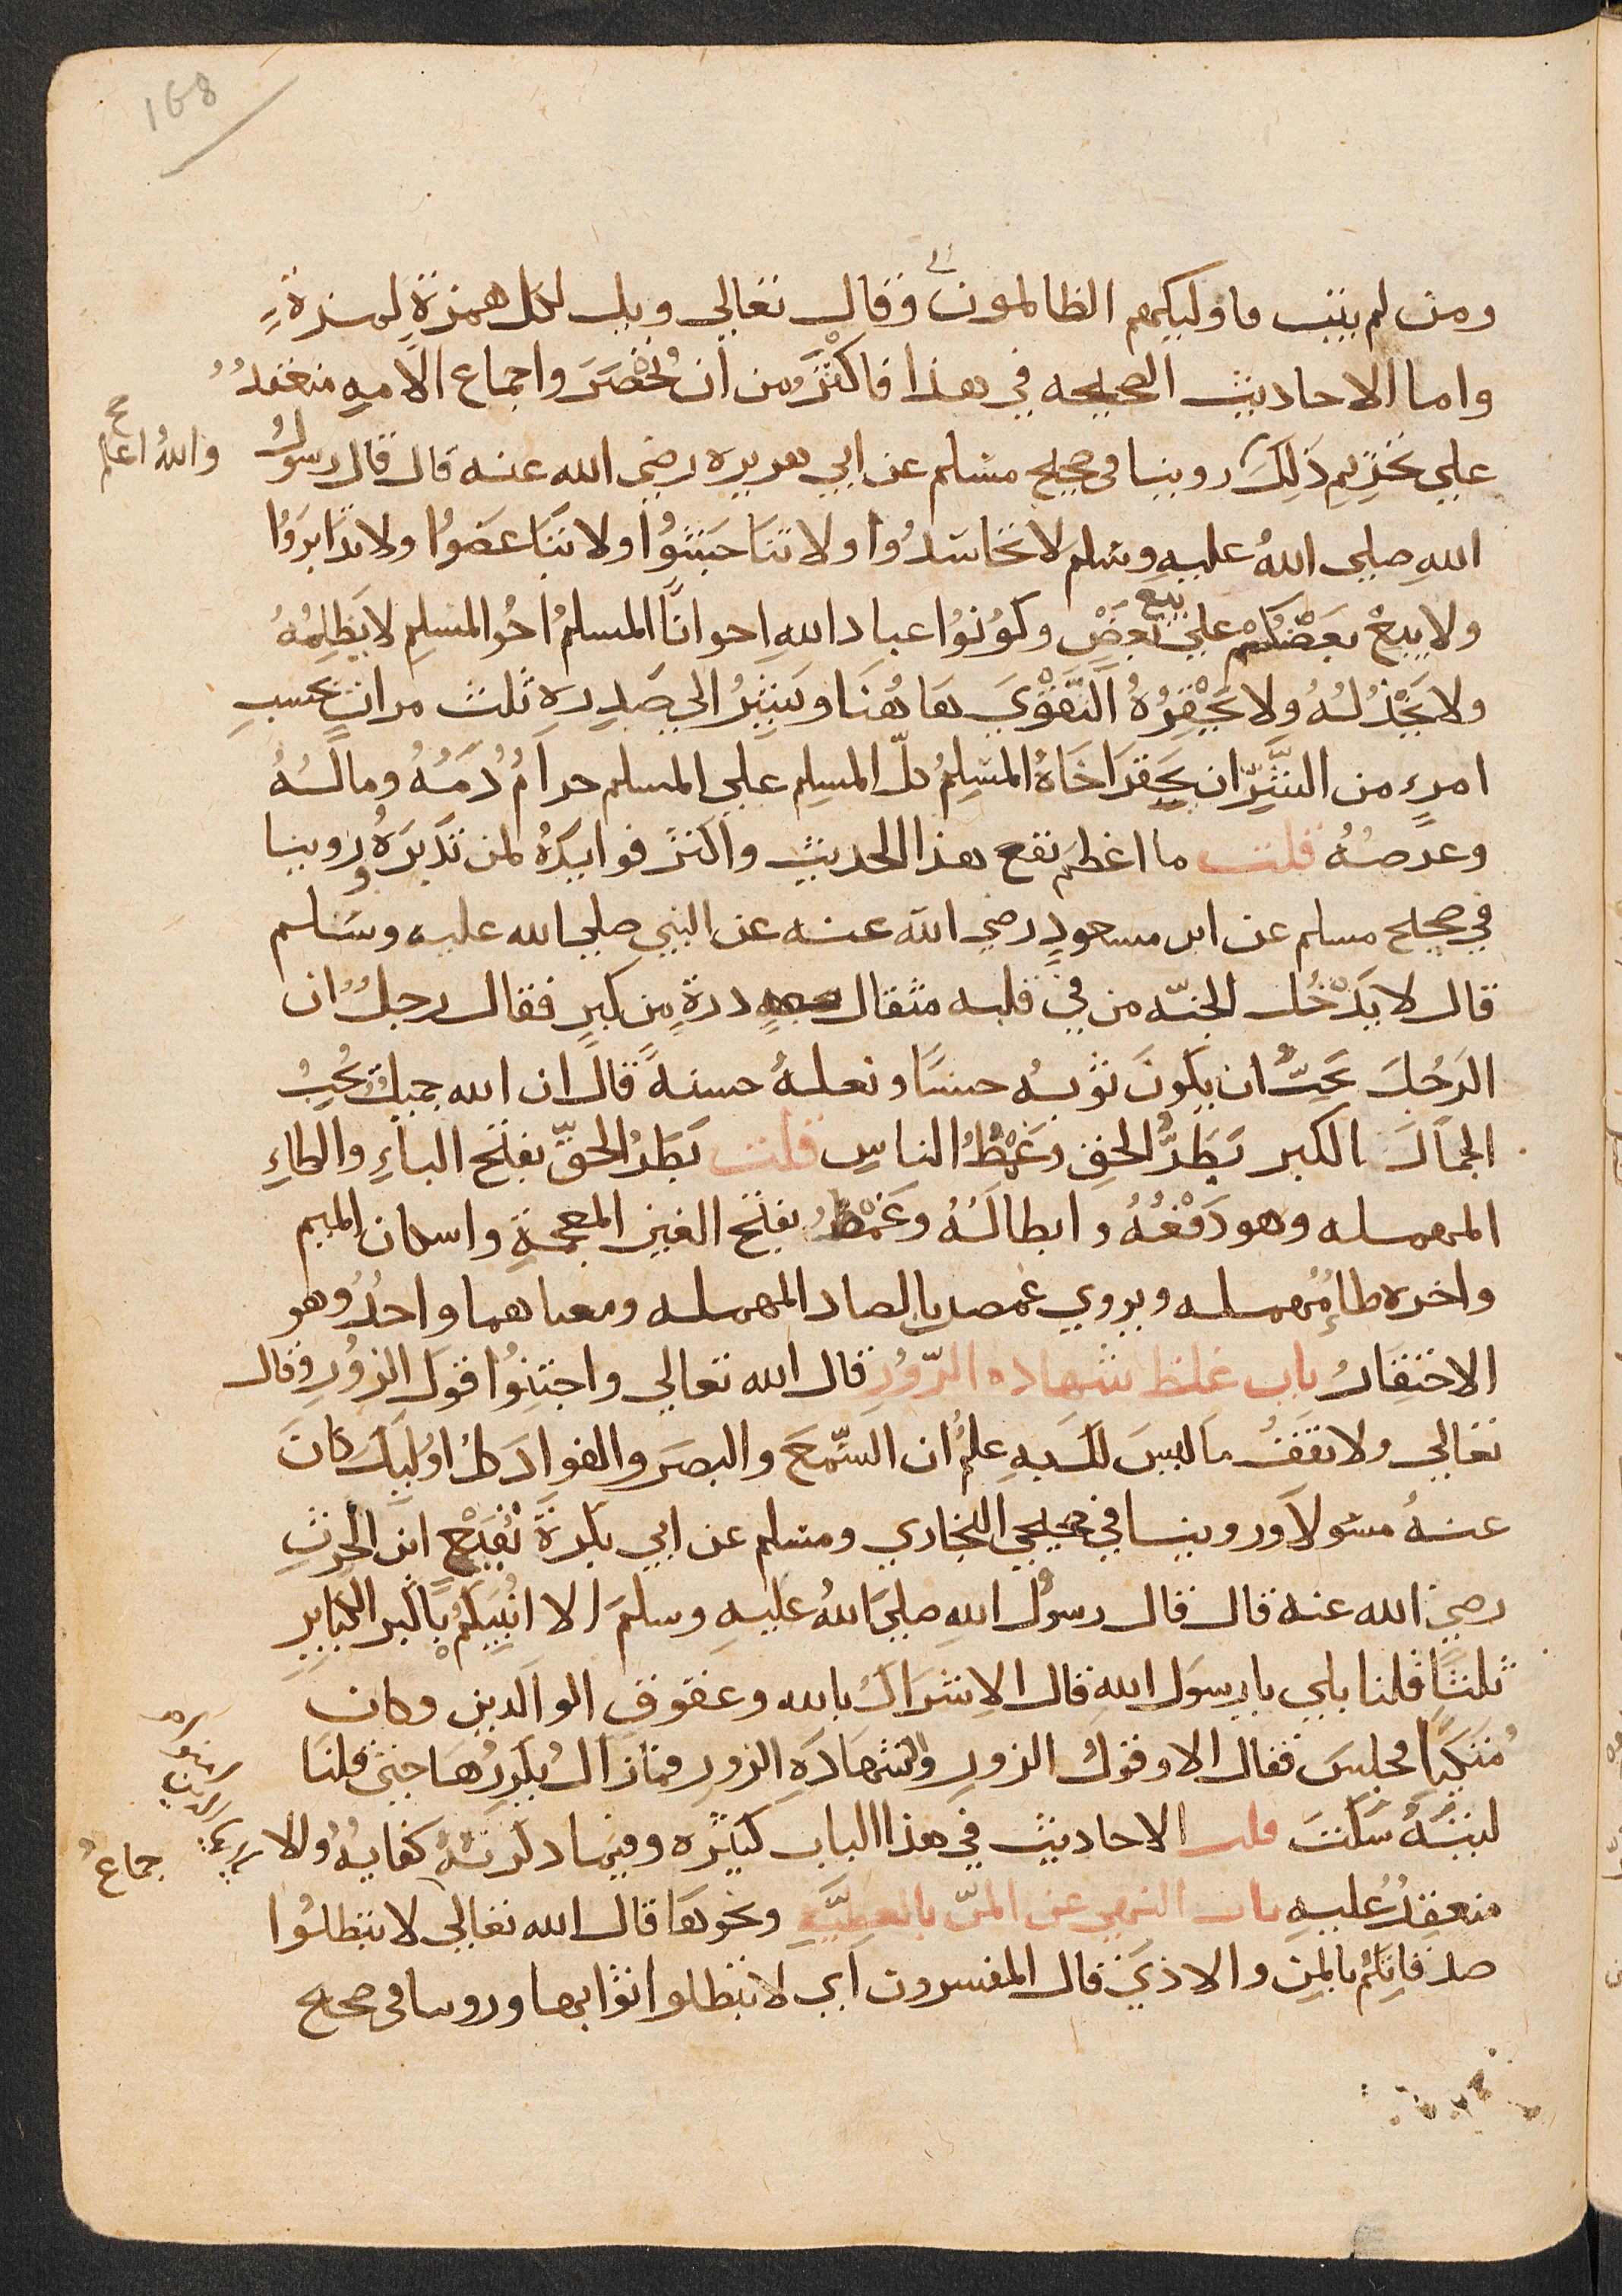 168
ومن لم يتب فاوليكهم الظالمون وقال تعالى ويل لكل همزةٍ لمزةٍ
واما الاحاديث الصحيحه في هذا فاكثَرُ من ان تُحْصَرَ واجماع الامهِ منعقدٌ
على تحْرِيمِ ذَلِكَ روينا فى صحيح مسلم عن ابي هريره رضى الله عنه قال قال رسولُ
واللهُ اعلم صح
اللهِ صلى اللهُ عليهِ وسلم لا تحاسَدُوا ولا تَنَاجَشُوا ولا تَبَاغَضُوا ولا تَدَابَرَوُا
ولا يبعْ بعَضُكُمْ على بيع بَعضٍ وكوُنوُا عبادَ اللهِ اخوانًا المسلمُ اخُو المسْلِمِ لا يَظلِمُهُ
ولا يَخْذُلُهُ ولا يَحْقِرُهُ التَّقْوَي هَا هُنَا ويَشِيرُ الى صَدِرهِ ثلث مراتٍ بحَسبِ
امرءٍ من الشَّرِّ ان يَحقرَ اخَاهُ المسْلِمُ كلّ المسْلِم على المسلم حرامُ دُمَهُ ومالُهُ
وعرضُهُ قلت ما اعظم نفع هذا الحديث واكثرَ فوايدَهُ لمن تَدَبَرَهُ وروينا
في صحيح مسلم عن ابن مسعودٍ رضي الله عنه عن النبي صلى الله عليه وسَلم
قال لا يَدْخُل الجنّه من في قلبه مثقال ذرةٍ من كبرٍ فقال رجلٌ ان
الرَجُلَ يحَبُّ ان يكونَ ثوبهُ حسنًا ونعلهُ حسنهً قال ان الله جميلٌ يُحِبُ
الجمالَ الكبر بَطَرُ الحق وغَمْطُ الناسِ قلت بَطَرُ الحقّ بفتح الباءِ والطاءِ
المهمله وهو دَفْعُهُ وابطالُهُ وغَمْطُ بفتح الغين المعجمةِ واسكان الميم
واخره طاءٌ مُهمله ويروي غمص بالصاد المهمله ومعناهما واحدُ وهو
الاحتقارُ باب غلظ شهاده الزّورِ قال الله تعالى واجتنِبُوا قولَ الزورِ وقال
تعالى ولا تقفُ ما ليسَ لكَ بهِ علمُ ان السَّمعَ والبصَرَ والفوادَ كلُ اوُليكَ كانَ
عنهُ مسَولاً وروينا في صحيحى البخاري ومسلم عن ابي بكرةَ نُفَيْعٍ ابن الحرثِ
رضيَ الله عنه قال قال رسوُل اللهِ صلى اللهُ عليهِ وسلمَ الا انبُيكمُ باكبر الكبايرِ
ثلثًا قلنا بلى يا رسولَ اللهِ قال الاِشرَاكُ بالله وعقوق الوالدين وكان
مُتكيًا فجلسَ فقال الا وقولُ الزورِ والشهادَهِ الزورِ فمازالُ يكررُهَا حتى قلنَا
ليتهُ سَكتَ قلت الاحاديث في هذا الباب كثيره وفيما ذكرتهُ كفايهُ والا
جماعُ
منعقِدُ عُليهِ باب النهي عن المنّ بالعطيَّهِ ونحوهَا قال الله تعالى لا تبطلُوا
صدقاتِكُم بالمن والاذي قال المفسرون اي لا تبطلوا ثوابها وروينا فى صحيح